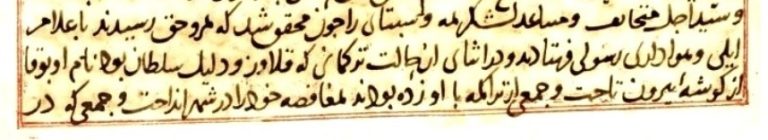 و سید اجل متخلف و مساعد لشکر همه و سبتای را چون محقق شد که هر دو حق رسیدند باعلام
ایلی و هواداری رسولی فرستادند و در اثنای آن حالت ترکمانی که قلاوز و دلیل سلطان بود نام او بوقا
از گوشه بیرون تاخت و جمعی از تراکمه با او زده بودند مغافصه خود را در شهر انداخت و جمعی که در